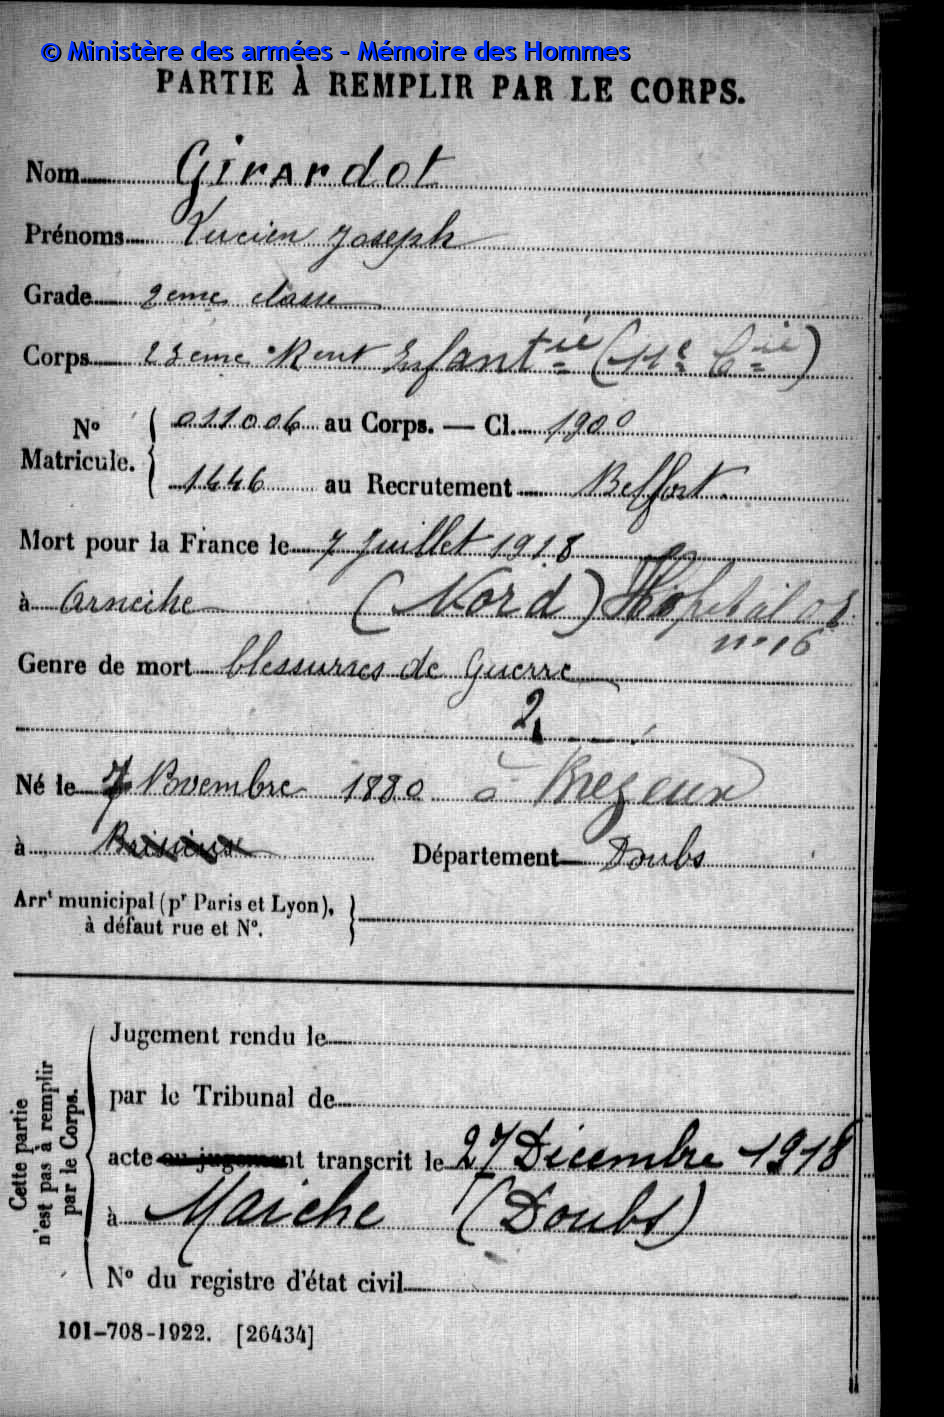 © Ministère des armées - Mémoire des Hommes
PARTIE À REMPLIR PAR LE CORPS.
Nom Girardot
Prénoms Lucien Joseph
Grade 2eme classe
Corps 23eme Rent Infantie (11e Cie)
No Matricule. { 011006 au Corps. — Cl. 1900
1446 au Recrutement Belfort.
Mort pour la France le 7 Juillet 1918
à Arneike (Nord) Hôpital
n° 16
Genre de mort blessures de Guerre
2
Né le 7 Novembre 1880 à
à Département Doubs
Arrt municipal (pr Paris et Lyon), à défaut rue et N°. }
Cette partie n'est pas à remplir par le Corps.
Jugement rendu le
par le Tribunal de
acte au jugement transcrit le 27 Décembre 1918
à Maiche (Doubs)
N° du registre d'état civil
101-708-1922. [26434]